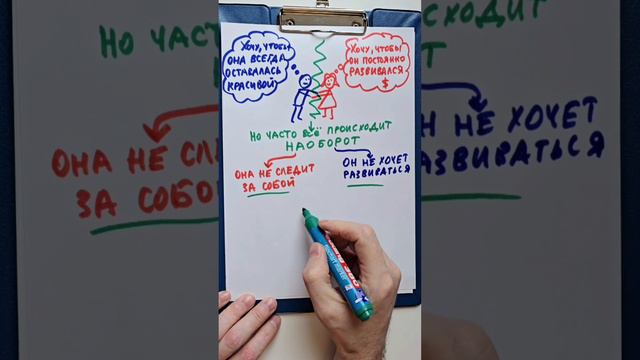 Хочу, чтобы
она всегда
оставалась
красивой
Хочу, чтобы
он постоянно
развивался
$
Но часто всё происходит
наоборот
Она не следит
за собой
Он не хочет
развиваться